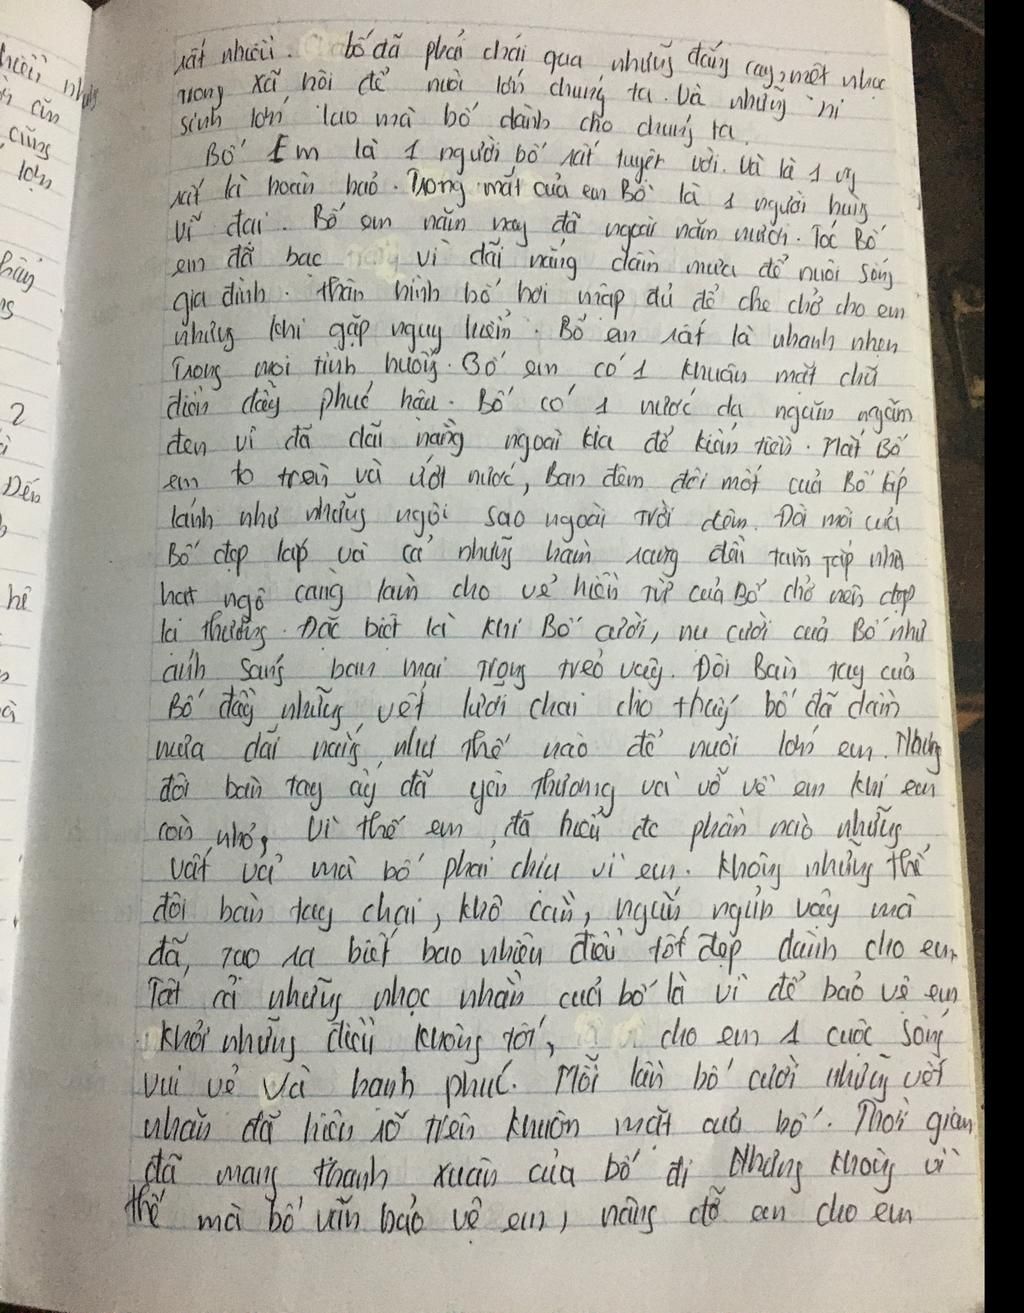 rất nhiều. bố đã phải chải qua những đắng cay, mệt nhọc
trong xã hôi để nuôi lớn chúng ta. Và những hi
sinh lớn lao mà bố dành cho chúng ta
Bố Em là 1 người bố rất tuyệt vời. Và là 1 vị
rất là hoàn hảo. Trong mắt của em Bố là 1 người hùng
vĩ đại. Bố em năm nay đã ngoài năm mươi. Tóc Bố
em đã bạc vì dãi nắng dầm mưa để nuôi sống
gia đình. thân hình bố hơi mập đủ để che chở cho em
những khi gặp nguy hiểm. Bố em rất là nhanh nhẹn
Trong mọi tình huống. Bố em có 1 khuân mặt chữ
điền đầy phúc hậu. Bố có 1 nước da ngăm ngăm
đen vì đã dãi nắng ngoài kia để kiếm tiền. Mắt Bố
em to tròn và ướt nước, Ban đêm đôi mắt của Bố lấp
lánh như những ngôi sao ngoài trời đêm. Đôi môi của
Bố đẹp lắp và cả những hàm rang đầi tăm tắp như
hạt ngô càng làm cho vẻ hiền từ của Bố chở nên đẹp
lạ thường. Đặc biệt là khi Bố cười, nụ cười của Bố như
ánh sáng ban mai trong trẻo vậy. Đôi Bàn tay của
Bố đầy những vết lười chai cho thấy bố đã dầm
mưa dãi nắng như thế nào để nuôi lớn em. Nhưng
đôi bàn tay ấy đã yêu thương và vỗ về em khi em
còn nhỏ, Vì thế em đã hiểu đc phần nào những
vất vả mà bố phải chịu vì em. Không những thế
đôi bàn tay chai, khô cằn, ngắn ngủn vậy mà
đã, tạo ra biết bao nhiêu điều tốt đẹp dành cho em,
Tất cả những nhọc nhằn của bố là vì để bảo vệ em
khỏi những điều không tốt, cho em 1 cuộc sống
vui vẻ Và hạnh phúc. Mỗi lần bố cười những vết
nhăn đã hiện rõ trên khuôn mặt của bố. Thời gian
đã mang thanh xuân của bố đi Nhưng không vì
thế mà bố vẫn bảo vệ em, nâng đỡ em cho em